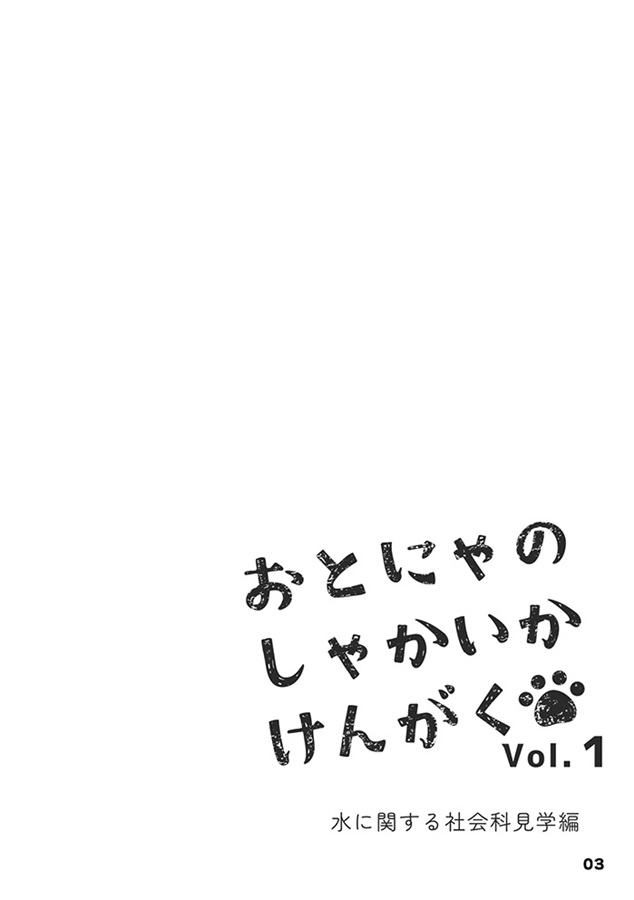 おとにゃの
しゃかいか
けんがく
Vol.1
水に関する社会科見学編
03